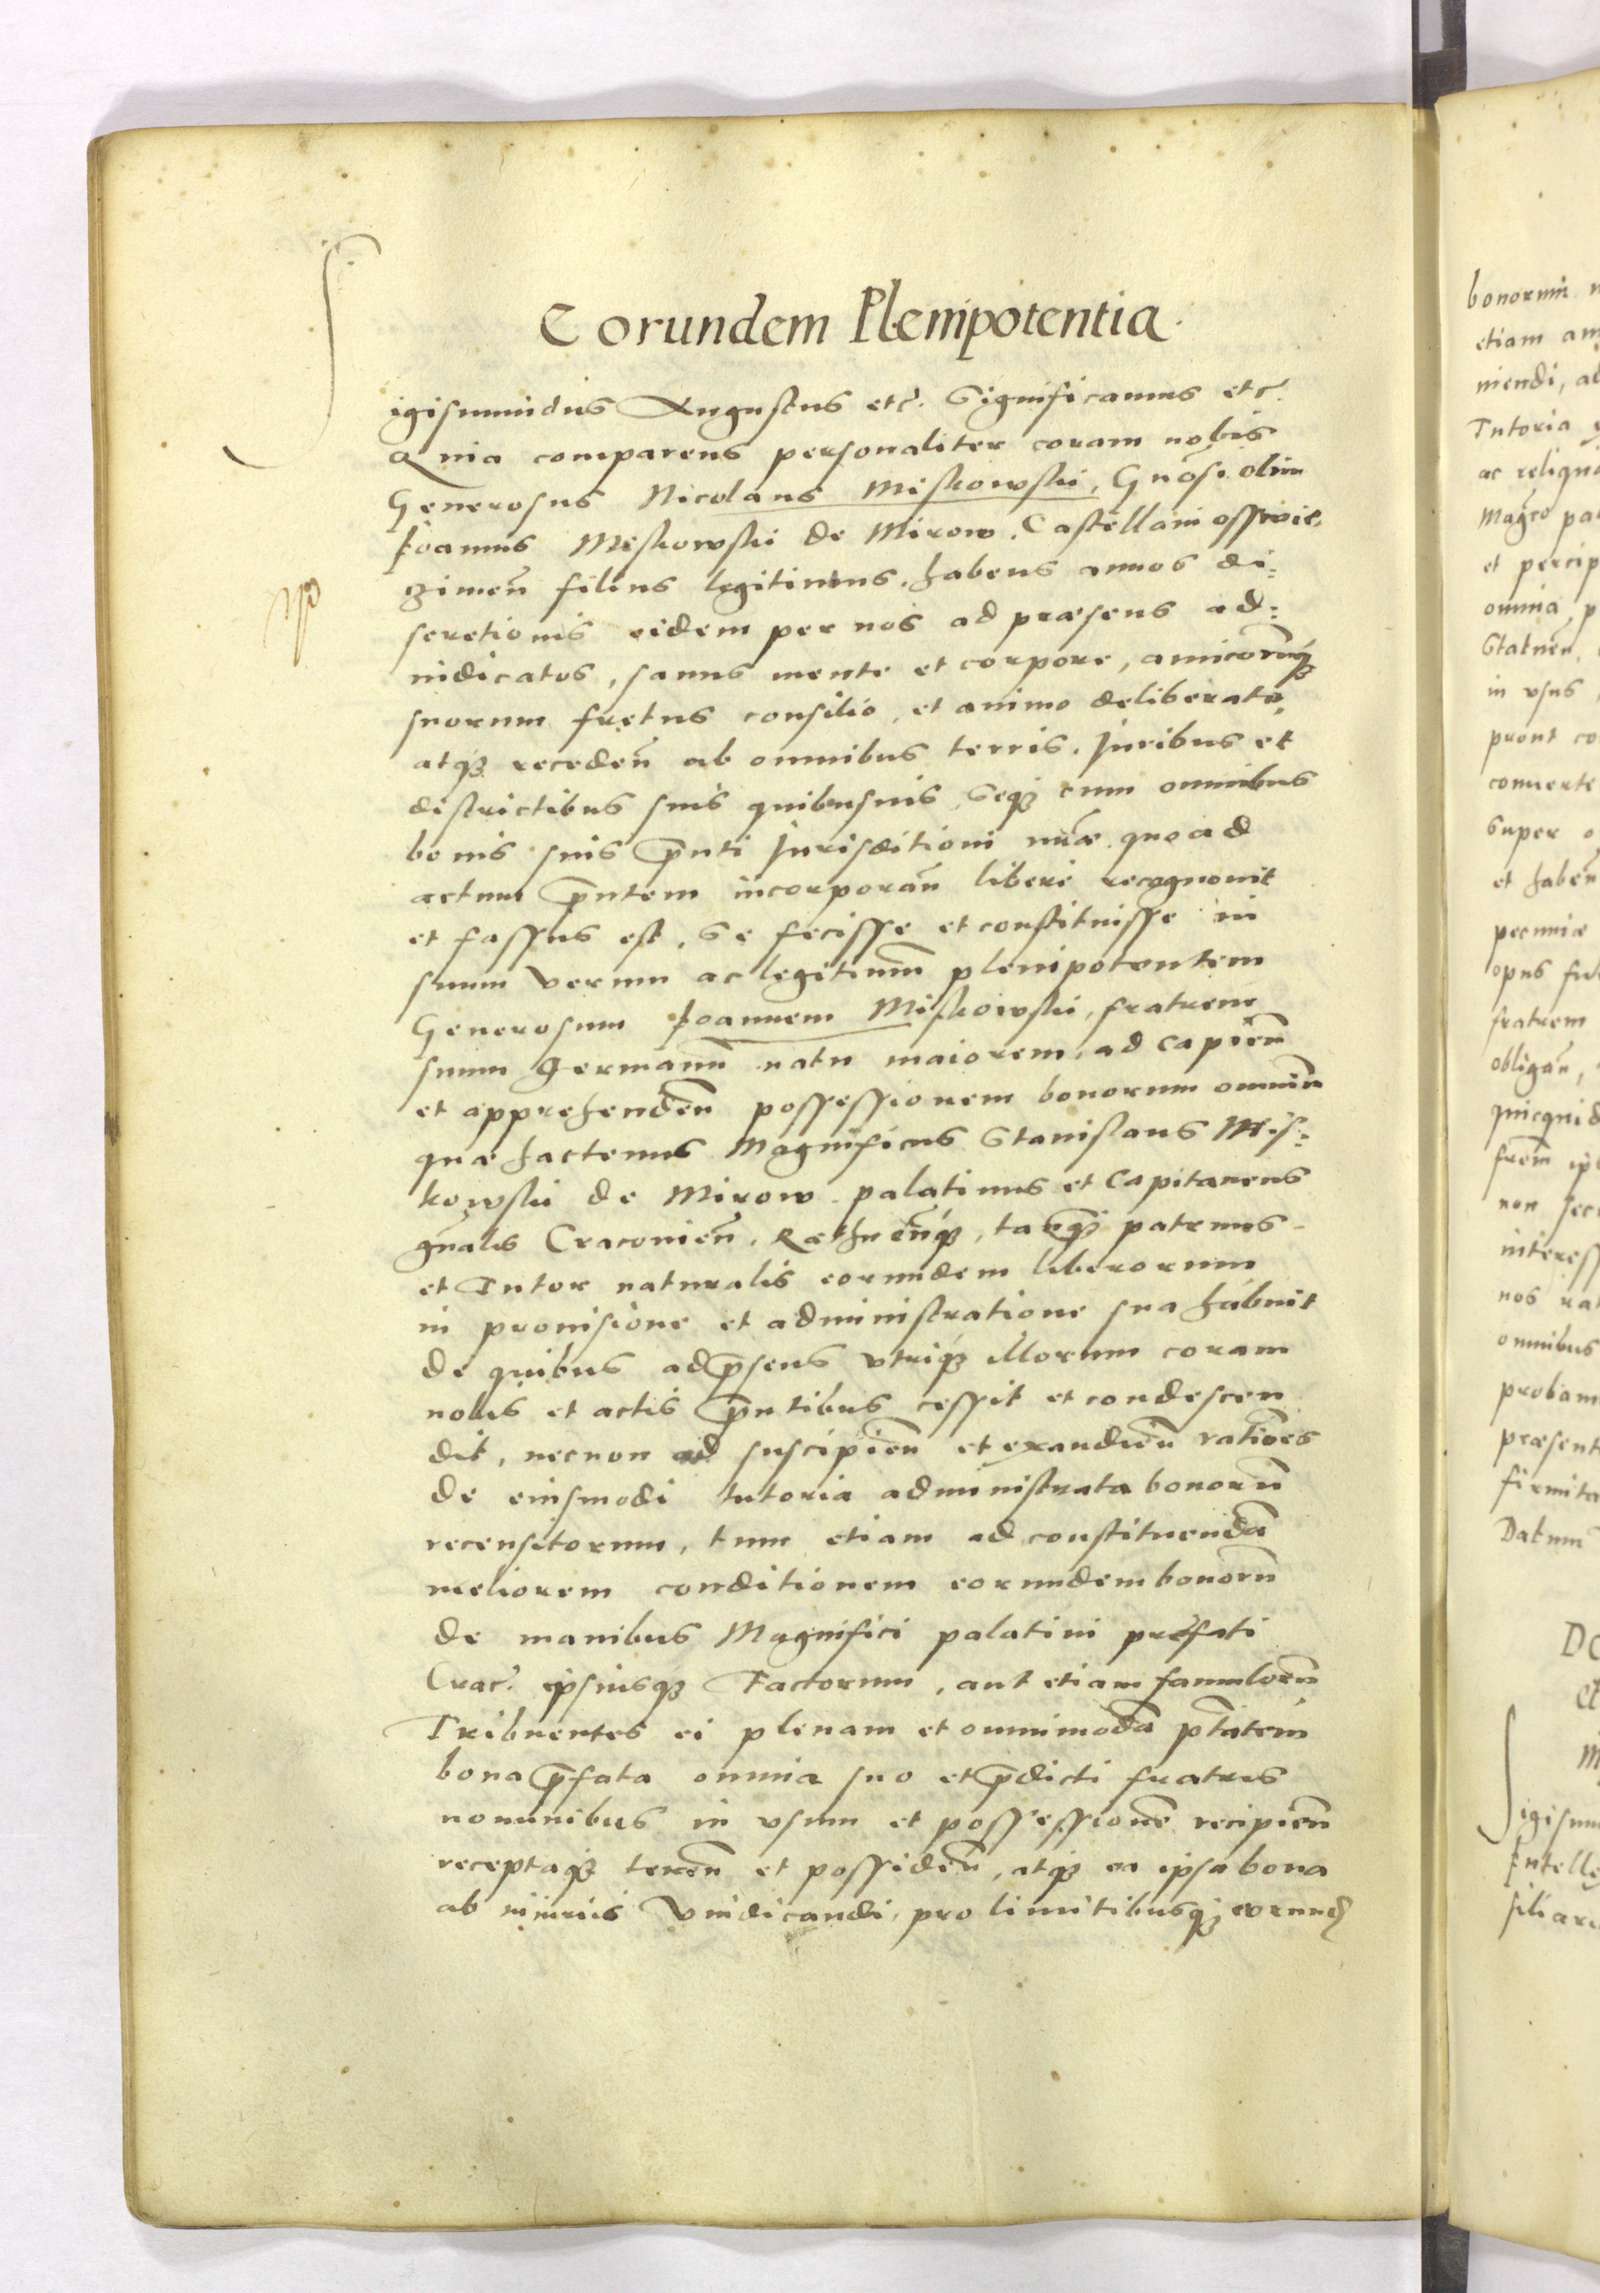 Eorundem Plenipotentia.
Sigismundus Augustus etc. Significamus etc.
Quia comparens personaliter coram nobis
Generosus Nicolaus Miskowski, Gnosi olim
Joannis Miskowski de Mirow. Castellani osswie.
zimen̄ filius legitimus. habens annos di:
scretionis eidem per nos ad præsens ad:
iudicatos, sanus mente et corpore, amicorūq3
suorum fretus consilio, et animo deliberato,
atq3 receden̄ ab omnibus terris. Juribus et
districtibus suis quibusuis, Seq3 cum omnibus
bonis suis p̄nti Jurisditioni nr̄æ quoad
actum p̄ntem incorporan̄ libere recognouit
et fassus est. Se fecisse et constituisse in
suum verum ac legitimū plenipotentem
Generosum Joannem Miskowski, fratrem
suum germanū natu maiorem, ad capien̄
et apprehenden̄ possessionem bonorum omniū
quæ hactenus Magnificus Stanislaus Mis:
kowski de Mirow palatinus et Capitaneus
gn̄alis Cracouien̄. Rathnen̄q3, tanq3 patruus
et Tutor naturalis eorundem liberorum
in prouisione et administratione sua habuit
de quibus ad p̄sens vtriq3 illorum coram
nobis et actis p̄ntibus cessit et condescen
dit, necnon ad suscipien̄ et exaudien̄ ratiōes
de eiusmodi tutoria administrata bonorū
recensitorum, tum etiam ad constituendā
meliorem conditionem eorundem bonorū
de manibus Magnifici palatini præfati
Crac. ipsiusq3 Factorum, aut etiam famulorū
Tribuentes ei plenam et omnimodā ptātem
bona p̄fata omnia suo et p̄dicti fratris
nominibus in vsum et possessionē recipien̄
receptaq3 tenen̄ et possiden̄, atq3 ea ipsa bona
ab iniuriis vindicandi, pro limitibusq3 eorund
bonorum
etiam
niendi, ad
Tutoria
ac reliqua
Magco
et percip
omnia
in vsus
prout
conuerte
super
et haben̄
pecuniæ
opus
fratrem
obligan̄,
quicquid
non
interess
nos
omnibus
probam
præsent
firmita
Datum